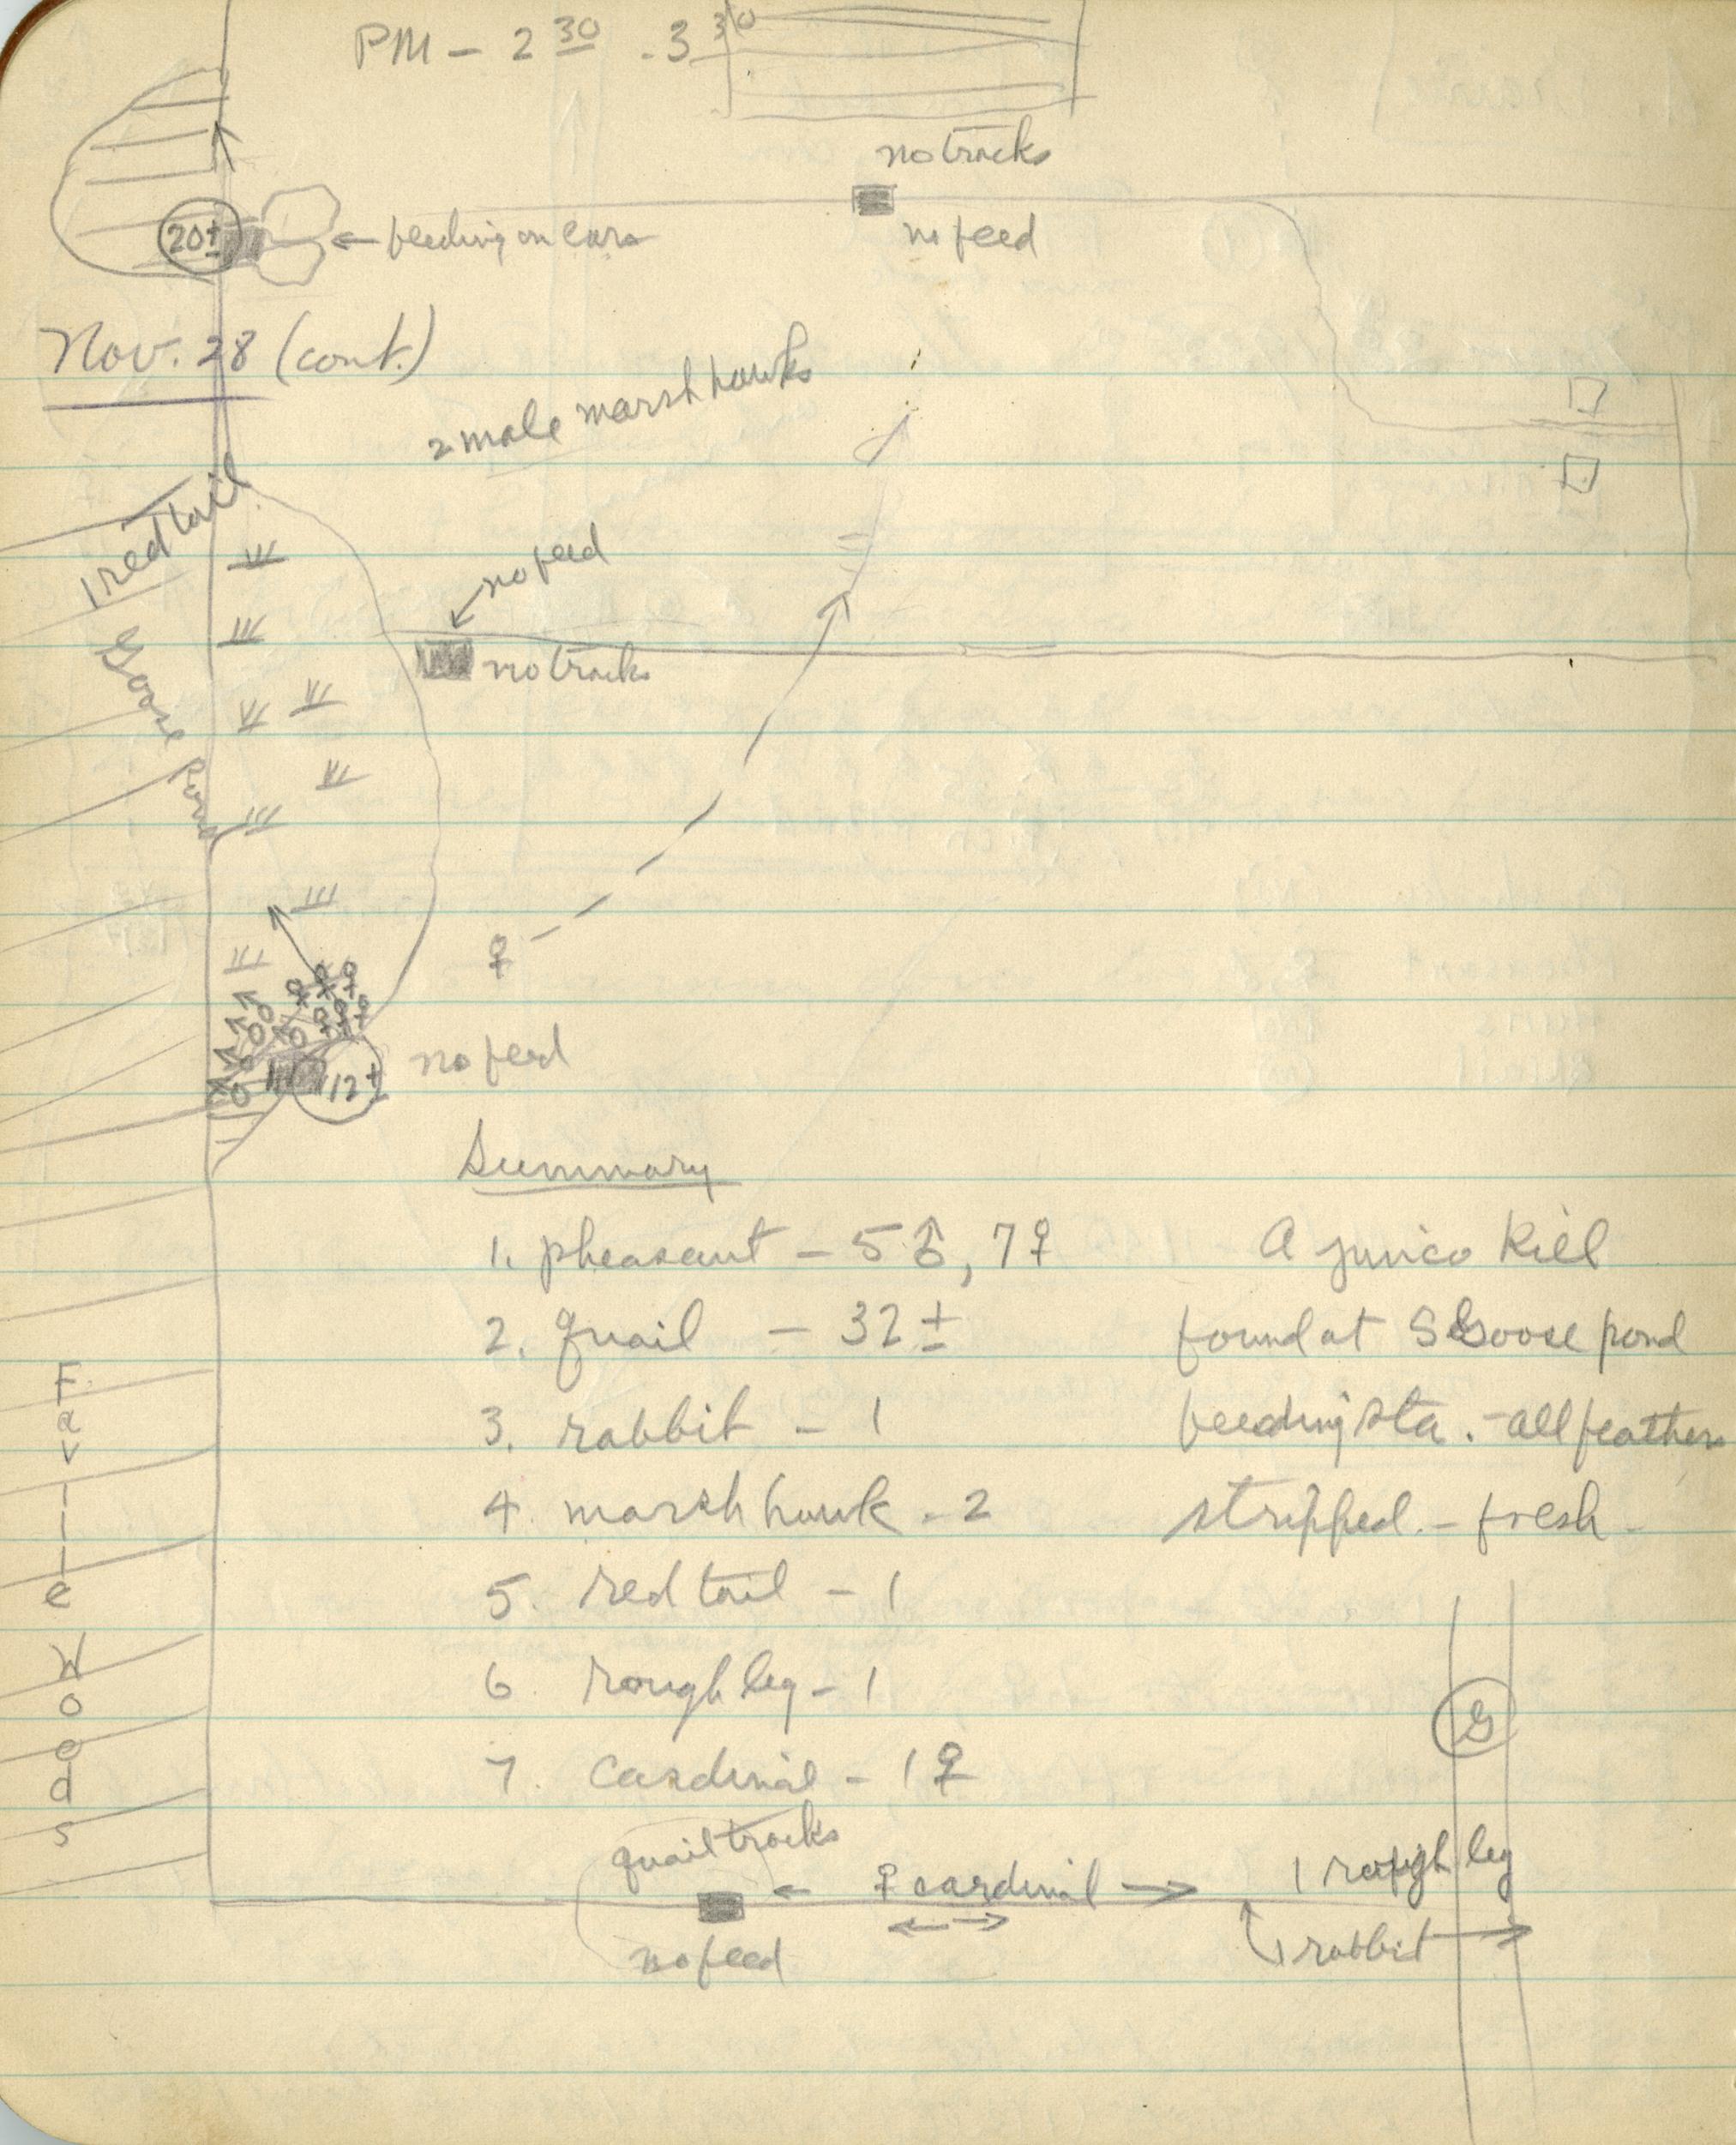 PM - 2 30 - 3 30
no tracks
20± ← feeding on ears
no feed
Nov. 28 (cont.)
2 male marsh hawks
1 red tail
no feed
no tracks
Goose Pond
♀
no feed
12±
Summary
1. pheasant - 5♂, 7♀
2. quail - 32±
3. rabbit - 1
4. marsh hawk - 2
5. red tail - 1
6. rough leg - 1
7. cardinal - 1♀
A junco kill
found at S Goose pond
feeding sta. - all feathers
stripped. - fresh -
Faville Woods
S
quail tracks
← ♀ cardinal →
1 rough leg
no feed
1 rabbit →